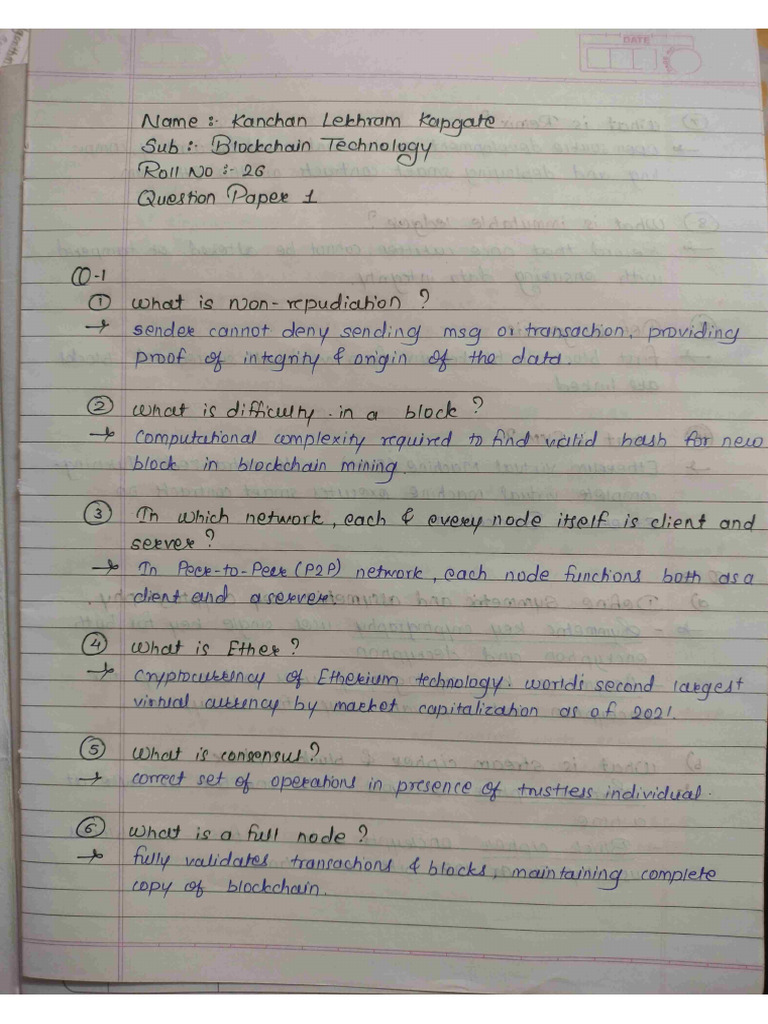 DATE
Name :- Kanchan Lekhram Kapgate
Sub :- Blockchain Technology
Roll No :- 26
Question Paper 1
Q-1
① What is Non-repudiation ?
→ sender cannot deny sending msg or transaction, providing
proof of integrity & origin of the data.
② What is difficulty in a block ?
→ Computational complexity required to find valid hash for new
block in blockchain mining.
③ In which network, each & every node itself is client and
server ?
→ In Peer-to-Peer (P2P) network, each node functions both as a
client and a server.
④ What is Ether ?
→ Cryptocurrency of Etherium technology. worlds second largest
virtual currency by market capitalization as of 2021.
⑤ What is consensus ?
→ correct set of operations in presence of trustless individual.
⑥ What is a full node ?
→ fully validates transactions & blocks, maintaining complete
copy of blockchain.